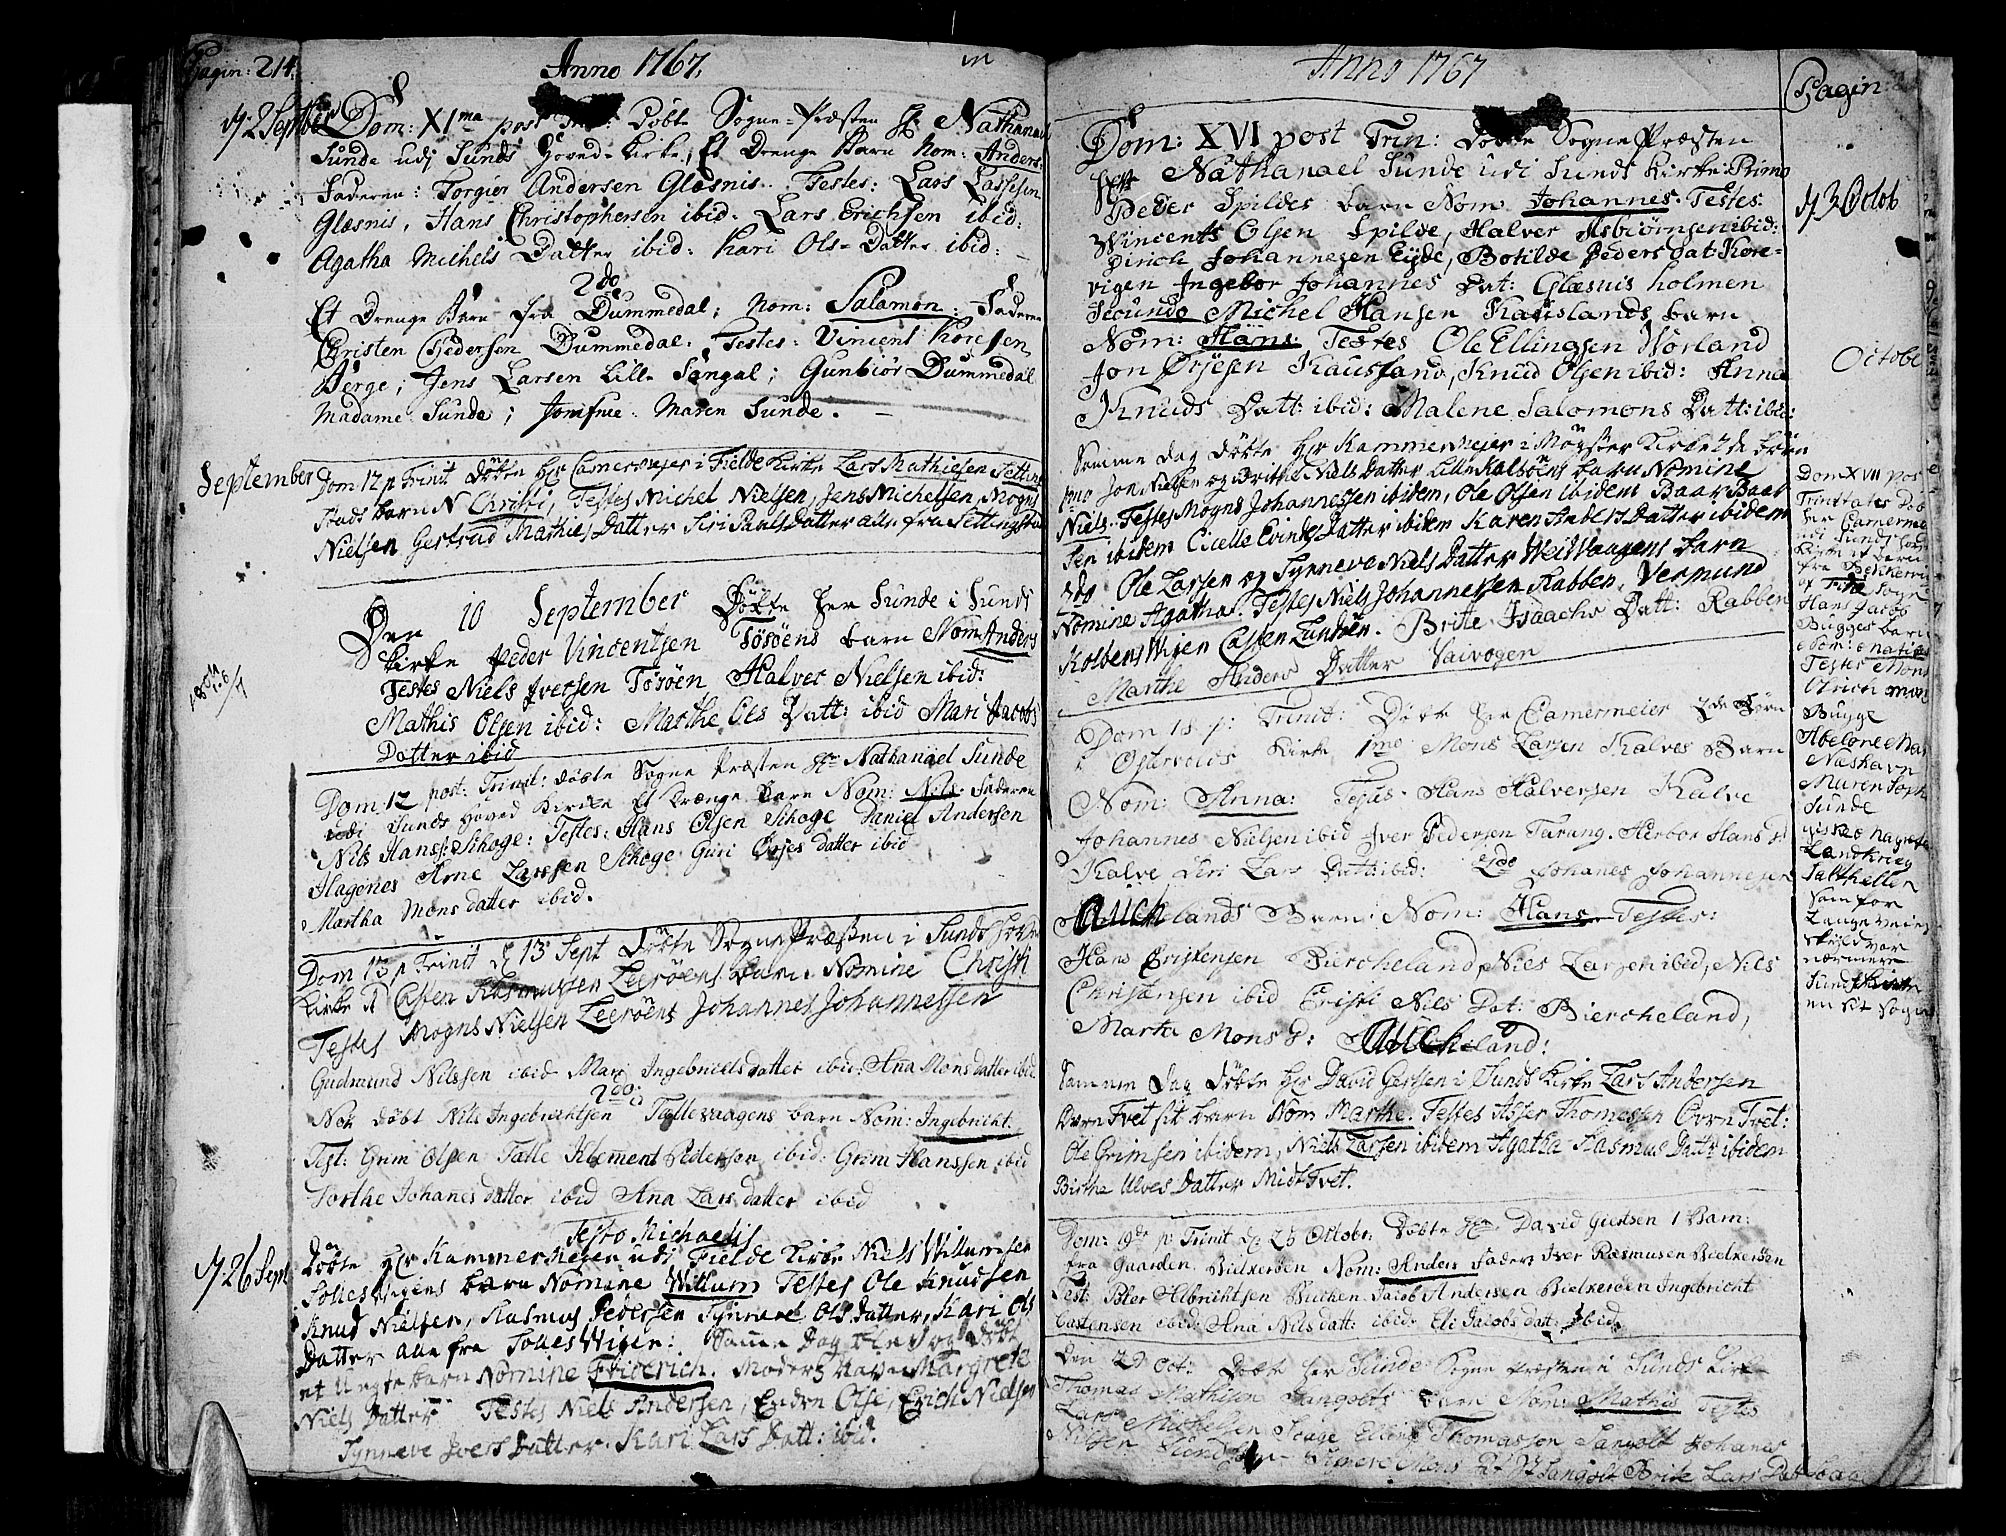 Pagin: 214.
Anno 1767.
d: 2 September
Dom: XIma post Trin: Döbte Sogne-Præsten Hr Nathanael
Sunde udj Sunds Hoved-Kirke, Et Drenge Barn Nom: Anders:
Faderen: Torgier Andersen Glæsnis. Testes: Lars Lassesen
Glæsnis, Hans Christophersen ibid. Lars Erichsen ibid:
Agatha Michels Datter ibid: Kari Ols-Datter ibid:
2do
Et Drenge Barn fra Dummedal; Nom: Salamon: Faderen
Christen Pedersen Dummedal. Testes: Vincent
Berge; Jens Larsen Lille Sangul; Gunbiör Dummedal
Madame Sunde; Jomfrue Maren Sunde.
September
Dom 12 p Trinit Döbte Hr Camermejer i Fielde Kirke Lars Mathiesen Setting
stads barn N Christi, Testes Michel Nielsen, Jens Michelsen, Mogns
Nielsen Gertrud Mathies Datter Siri Pauls datter alle fra Settingstad
Den 10 September Döbte Her Sunde i Sunds
Kirke Peder Vincentsen Tösöens barn Nom Anders
Testes Niels Iversen Tösöen Halver Nielsen ibid:
Mathis Olsen ibid: Marthe Ols Datt: ibid Mari Jacobs
Datter ibid
Dom: 12 post: Trinit: döbte Sogne Præsten Hr Nathanael Sunde
udi Sunds Hoved Kirke Et Drænge Barn Nom: Nils: Faderen
Nils Hans: Schoge: Testes: Hans Olsen Schoge Daniel Andersen
Hagenes Arne Larssen Schoge Guri Örjes datter ibid
Martha Mons datter ibid.
Dom 13 p Trinit d 13 Sept Döbte SognePræsten i Sunds Hoved
Kirke Casten Rasmussen Leeröens barn Nomine Christi
Testes Mogns Nielsen Leeröens Johannes Johannessen
Gudmund Nilssen ibid Mari Ingebricts datter ibid: Ana Mons datter ibid
2do:
Nok döbt Nils Ingebrichtsen Tællevaagens barn Nom: Ingebricht:
Test: Grim Olsen Tælle Klement Pedersen ibid: Grim Hanssen ibid
Dorthe Johanes datter ibid Ana Lars datter ibid
Festo Michaelis
d: 26 Sept
Döbte Hr Kammermejer udi Fielde Kirke Niels Willumsen
Solies Wigens barn Nomine Willum Testes Ole Knudsen
Knud Nielsen, Rasmus Pedersen Synneve Ols Datter, Kari Ols
Datter alle fra Solies Wigen: Samme Dag blev og döbt
et Uegte barn Nomine Friderich. Moders Navn Margrete
Niels Datter Testes Niels Andersen, Enden Olse, Erich Nielsen
Synneve Ivers Datter. Kari Lars Datt: ibid.
Anno 1767
Pagin
Dom: XVI post Trin: Döbte SognePræsten
Hr Nathanael Sunde udi Sunds Kirke Primo
Peder Spildes barn Nom Johannes. Testes:
Wincents Olsen Spilde, Halver Asbiörnsen ibid:
Dirich Johannesen Eyde, Botilde Peders Dat: Kore-
vigen Ingebor Johannes Dat: Glæsnis holmen
Secundo Michel Hansen Kauslands barn
Nom: Hans: Testes Ole Ellingsen Wörland
Jon Örjesen Kausland, Knud Olsen ibid: Anna
Knuds Datt: ibid: Malene Salomons Datt: ibid:
d: 3 Octob
Octobe
Samme Dag döbte Hr Kammermejer i Mögster Kirke 2de börn
pmo Jon Nielsen og Brithe Niels Datter Lille Kalsöens barn Nomine
Niels. Testes Mogns Johannessen ibidem, Ole Olsen ibidem Baar Baar
sen ibidem Cicelle Evinds Datter ibidem Karen Anders Datter ibidem
2do Ole Lassen og Synneve Niels Datter Weiwaagens barn
Nomine Agatha. Testes Niels Johannessen Rabben, Vermund
Kolbens Wijen Casten Lunsöen. Brite Isaachs Datt: Rabben
Marthe Anders Datter Vaivogen
Dom 18 p: Trinit: Döbte Her Camermeier 2de Börn
i Östervolds Kirke 1mo Mons Larsen Kalves Barn
Nom: Anna: Testes Hans Halversen Kalve
Johannes Nielsen ibid Iver Pedersen Tarang. Herbor Hans D:
Kalve Siri Lars Datt: ibid: 2do Johanes Johannesen
Auchelands Barn: Nom: Hans Testes:
Hans Cristensen Bircheland, Niels Larsen ibid, Nils
Christensen ibid Cristi Niels Dat: Biercheland,
Marta Mons D: Aucheland:
Samme Dag Döbte Hr David Gertsen i Sunds Kirke Lars Andersen
Övre Tvet sit barn Nom Marthe. Testes Asser Thomessen Övre Tvet:
Ole Grimsen ibidem, Niels Larsen ibidem Agatha Rasmus Datter ibidem
Birthe Ulves Datter Midt Tvet.
Dom: 19de p: Trinit d: 25 Octobr: Döbte Hr David Giertsen 1 Barn:
fra Gaarden Bielkeröen Nom: Anders Fader Iver Rasmusen Bielkeröen
Test: Peter Albrichtsen Buchen Jacob Andersen Bielkeröen Ingebricht
Castensen ibid: Ana Nils datt: ibid: Eli Jacobs datt: ibid
Den 29 Oct: Döbte Her Sunde Sogne Præsten i Sunds Kirke
Thomas Mathisen Sangolts Barn Nom: Mathis Testes
Lars Michelsen Scage Elling Thomassen Sangolt Johanes
Nilsen Synneve Mons Dat: Sangolt Brite Lars Datt
Dom XVII post
Trinitates Döb
Her Camerme
udi Sunds Hov
Kirke et barn
fra Bekkervi
af Fitie Sogn
Hans Jacob
Bugges barn
Nom: Matias
Testes Mons
Olrich
Bugge
Abelone
Næshavn
Maren Soph
Sunde
Margrete
Landkrieg
som for
Lange veies
skyld var
nærmere
Sunds Kirke
en sit sogne